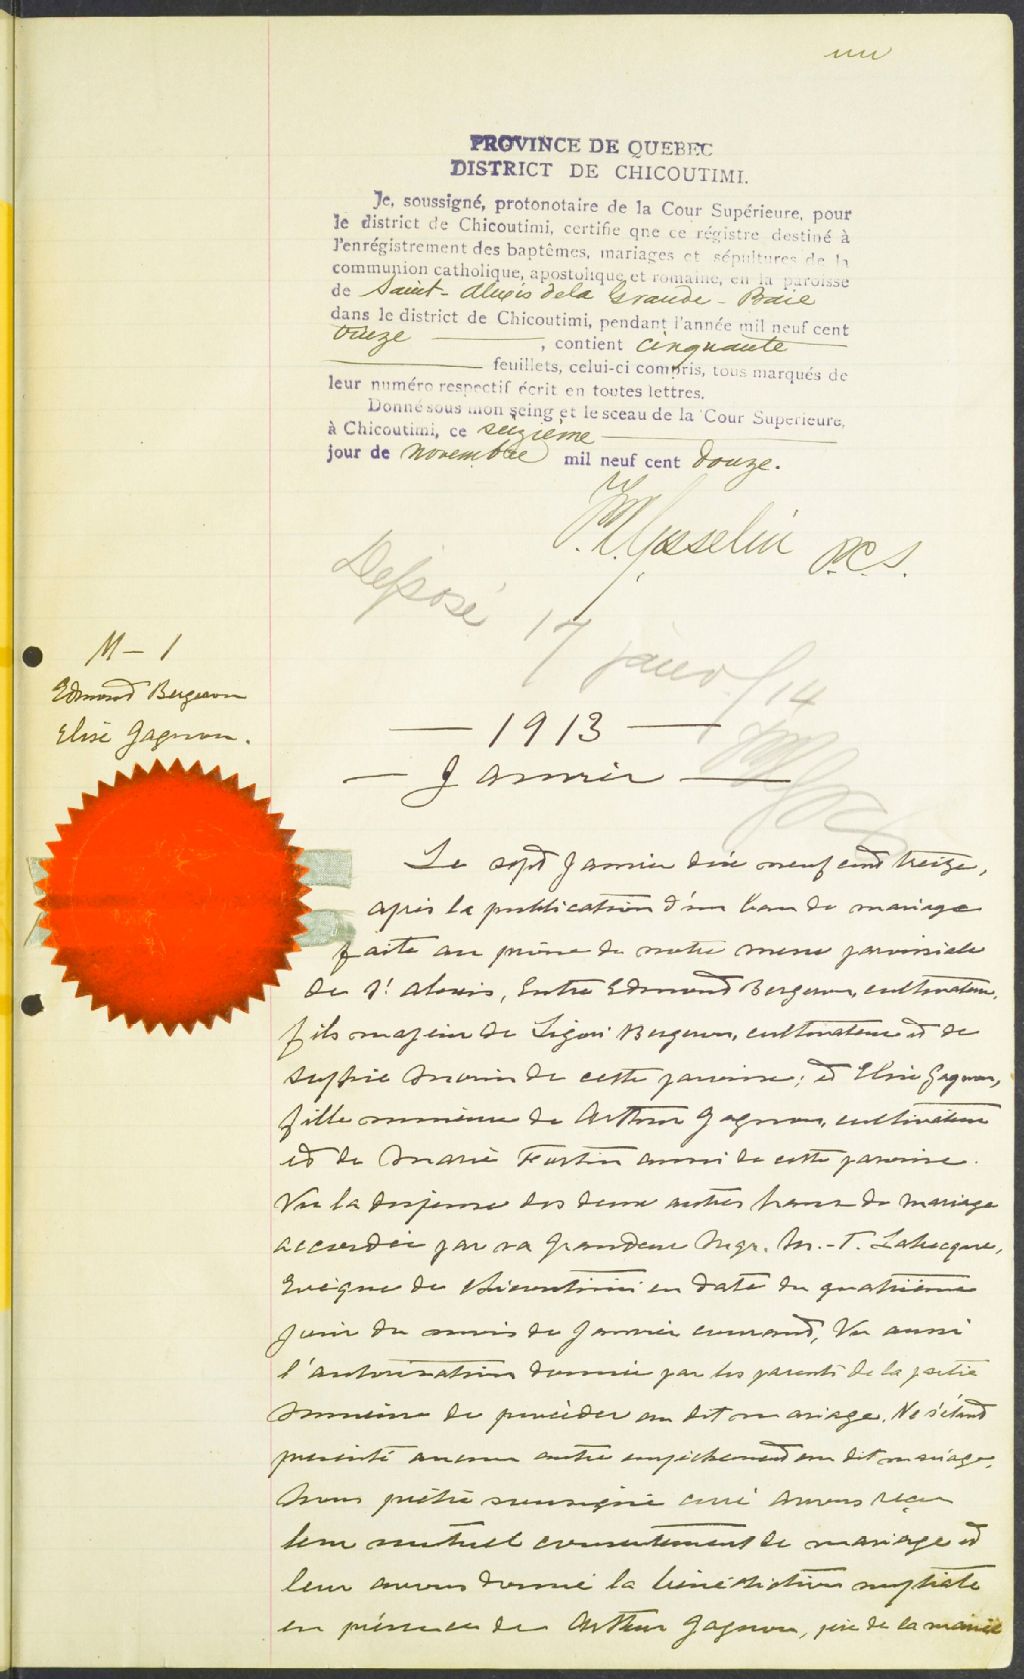 un
PROVINCE DE QUEBEC
DISTRICT DE CHICOUTIMI.
Je, soussigné, protonotaire de la Cour Supérieure, pour
le district de Chicoutimi, certifie qne ce régistre destiné à
l'enrégistrement des baptêmes, mariages et sépultures de la
communion catholique, apostolique et romaine, en la paroisse
de Saint-Alexis de la Grande-Baie
dans le district de Chicoutimi, pendant l'année mil neuf cent
treize, contient cinquante
feuillets, celui-ci compris, tous marqués de
leur numéro respectif écrit en toutes lettres.
Donné sous mon seing et le sceau de la Cour Superieure,
à Chicoutimi, ce seizième
jour de novembre mil neuf cent douze.
Gosselin P.C.S.
Déposé 17 janv./14
M-1
Edmond Bergeron
Elise Gagnon.
— 1913 —
— Janvier —
Le sept Janvier dix neuf cent treize,
après la publication d'un ban de mariage
faite au prône de notre messe paroissiale
de St. Alexis, Entre Edmond Bergeron, cultivateur,
fils majeur de Ligori Bergeron, cultivateur et de
Sophie Morin de cette paroisse; et Elise Gagnon,
fille mineure de Arthur Gagnon, cultivateur
et de Marie Fortin aussi de cette paroisse.
Vu la dispense des deux autres bans de mariage
accordée par sa Grandeur Mgr. M.-T. Labrecque,
Evêque de Chicoutimi en date du quatrième
jour du mois de Janvier courant, Vu aussi
l'autorisation donnée par les parents de la partie
mineure de procéder au dit mariage. Ne s'étant
présenté aucun autre empêchement au dit mariage,
Nous prêtre soussigné curé avons reçu
leur mutuel consentement de mariage et
leur avons donné la bénédiction nuptiale
en présence de Arthur Gagnon, père de la mariée